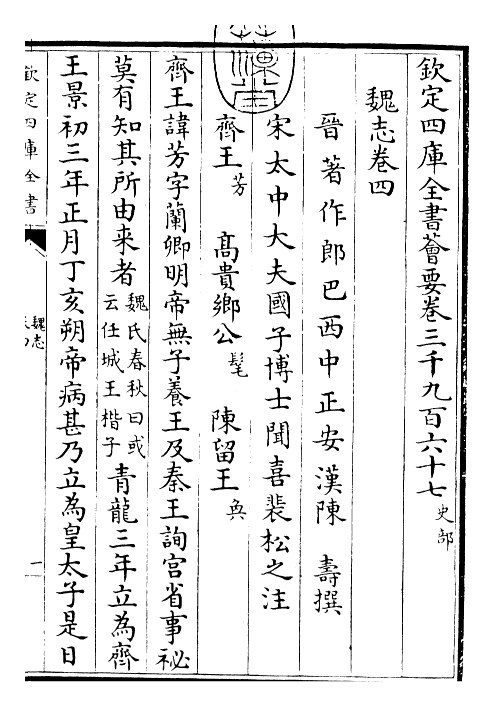 欽定四庫全書薈要卷三千九百六十七史部
魏志卷四
晉著作郎巴西中正安漢陳 壽撰
宋太中大夫國子博士聞喜裴松之注
齊王芳 髙貴鄉公髦 陳留王奐
齊王諱芳字蘭卿明帝無子養王及秦王詢宫省事祕
莫有知其所由来者魏氏春秋曰或云任城王楷子青龍三年立為齊
王景初三年正月丁亥朔帝病甚乃立為皇太子是日
欽定四庫全書
魏志
一